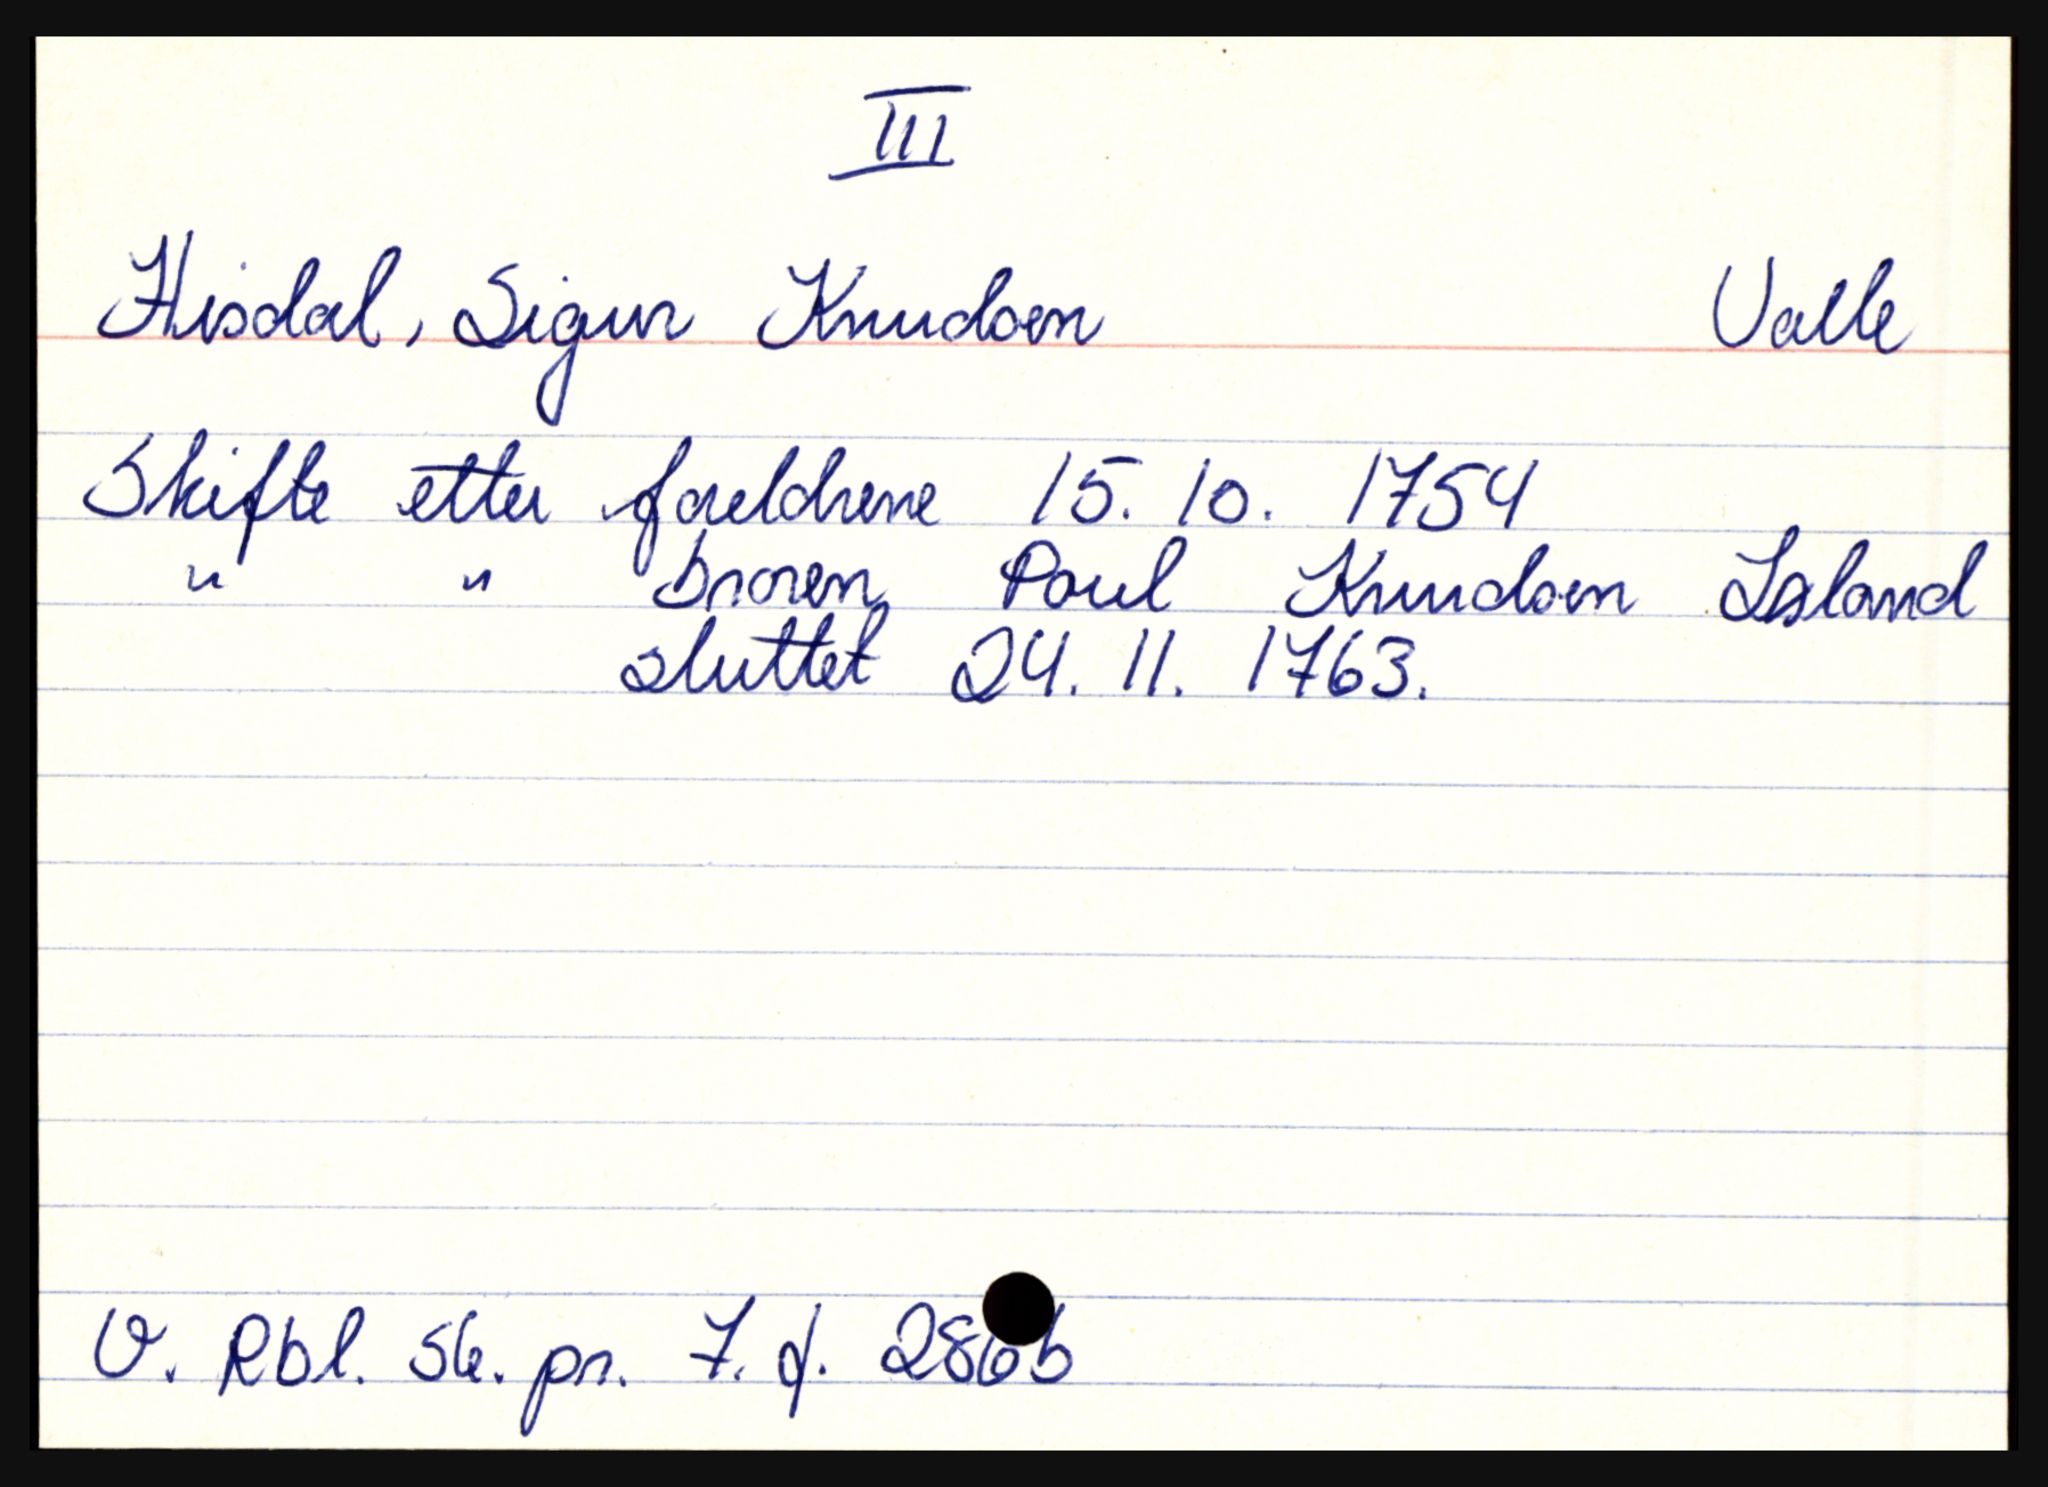 III
Hisdal, Sigur Knudsen Valle
Skifte etter foreldrene 15. 10. 1754
" " broren Paul Knudsen Løland
sluttet 24. 11. 1763.
V. Rbl. Sk. pr. 7. f. 286b